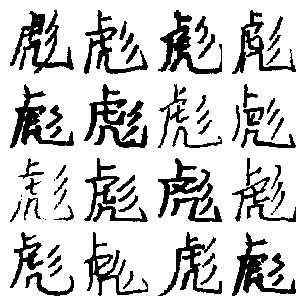 彪彪彪彪
彪彪彪彪
彪彪彪彪
彪彪彪彪